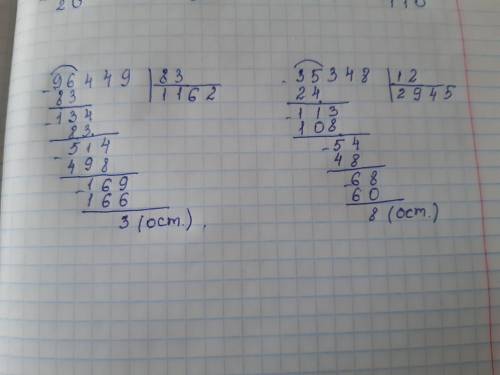 20
110
96449 | 83
- 83
1162
- 134
83
- 514
498
- 169
166
3 (ост.).
- 35348 | 12
24
2945
- 113
108
- 54
48
- 68
60
8 (ост.)